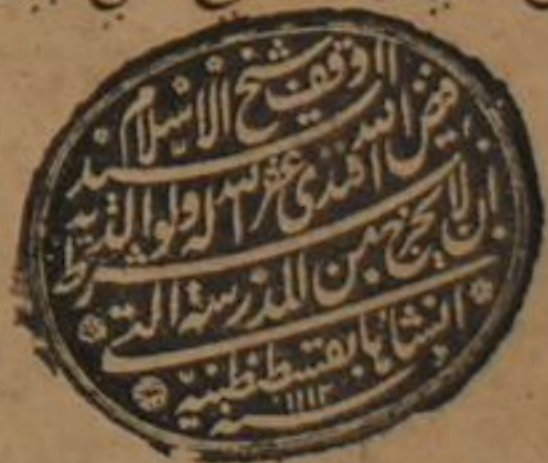 وقف شيخ الاسلام السيد
فيض الله افندي غفر الله له ولوالديه
بشرط ان لا يخرج من المدرسة التي
انشاها بقسطنطينية
سنه ١١١٢